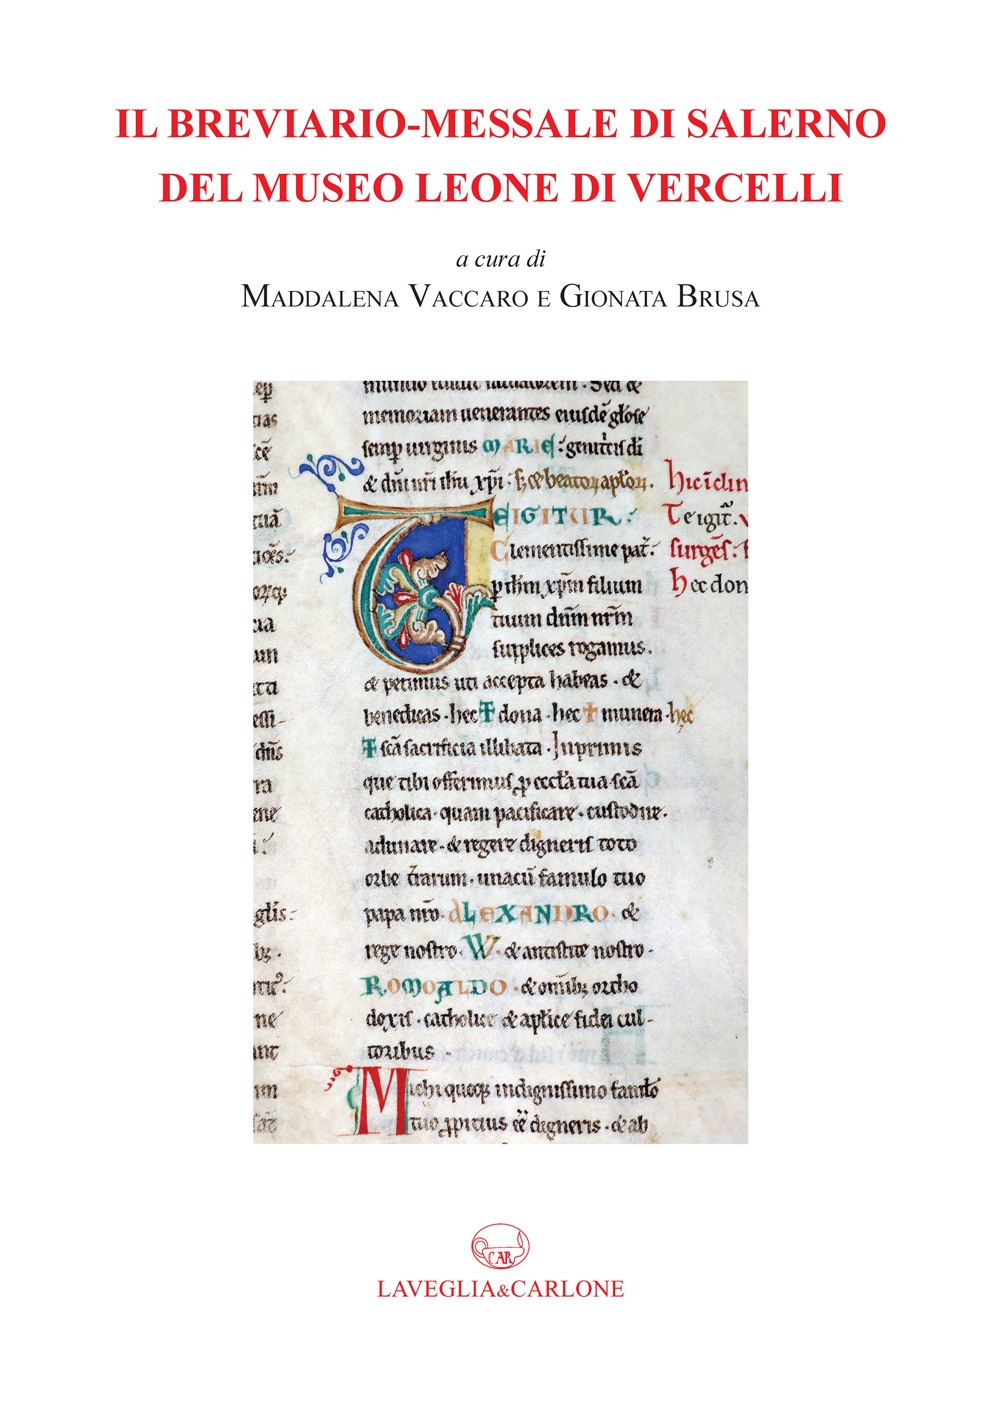 IL BREVIARIO-MESSALE DI SALERNO
DEL MUSEO LEONE DI VERCELLI
a cura di
MADDALENA VACCARO E GIONATA BRUSA
memoriam uenerantes eiusdē glōse
semp uirginis MARIE : genitricis di
& dn̄i nr̄i ihu xp̄i · &
hic īclin
TE IGITUR :
Te igit̄.
Clementissime pat̄ :
surges :
p ihm xp̄m filium
hec don
tuum dn̄m nr̄m
supplices rogamus .
& petimus uti accepta habeas · &
benedicas · hec ✝ dona · hec ✝ munera · hec
✝ sc̄a sacrificia illibata · Inprimis
que tibi offerimus p eccl̄a tua sc̄a
catholica · quam pacificare · custodire ·
adunare · & regere digneris toto
orbe t̄rarum · unacū famulo tuo
papa nr̄o · ALEXANDRO · &
rege nostro · W · & antistite nostro ·
ROMOALDO · & omīb; ortho
doxis · catholice & aplice fidei cul-
toribus ·
Michi quoq; indignissimo famlo
tuo ppitius eē digneris · & ab
glis :
ne
CAR
LAVEGLIA&CARLONE